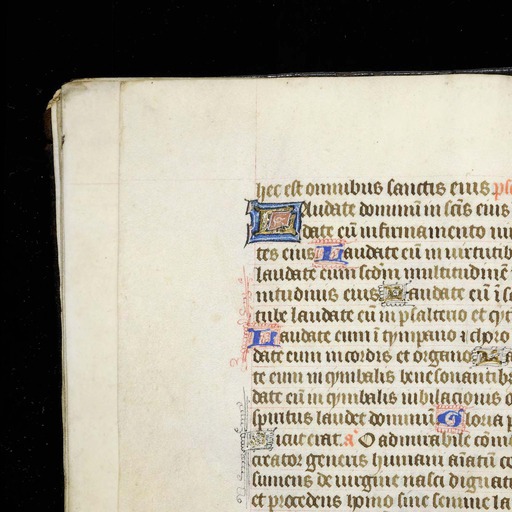 hec est omnibus sanctis eius ps
Laudate dominū in scīs eius
date eū in firmamento uir
tes eius Laudate eū in uirtutib
laudate eum scd̄m multitudinē
nitudinis eius Laudate eū ī so
tube laudate eū in psalterio et cyt
Laudate eum ī tympano ⁊ choro
date eum in cordis et organo La
te eum in cymbalis bene sonantib
date eū in cymbalis iubilacionis o
spiritus laudet dominū Gloria p
Sicut erat. a O admirabile cōm
creator generis humani aīatū co
sumens de uirgine nasci dignat
et procedens homo sine semine la